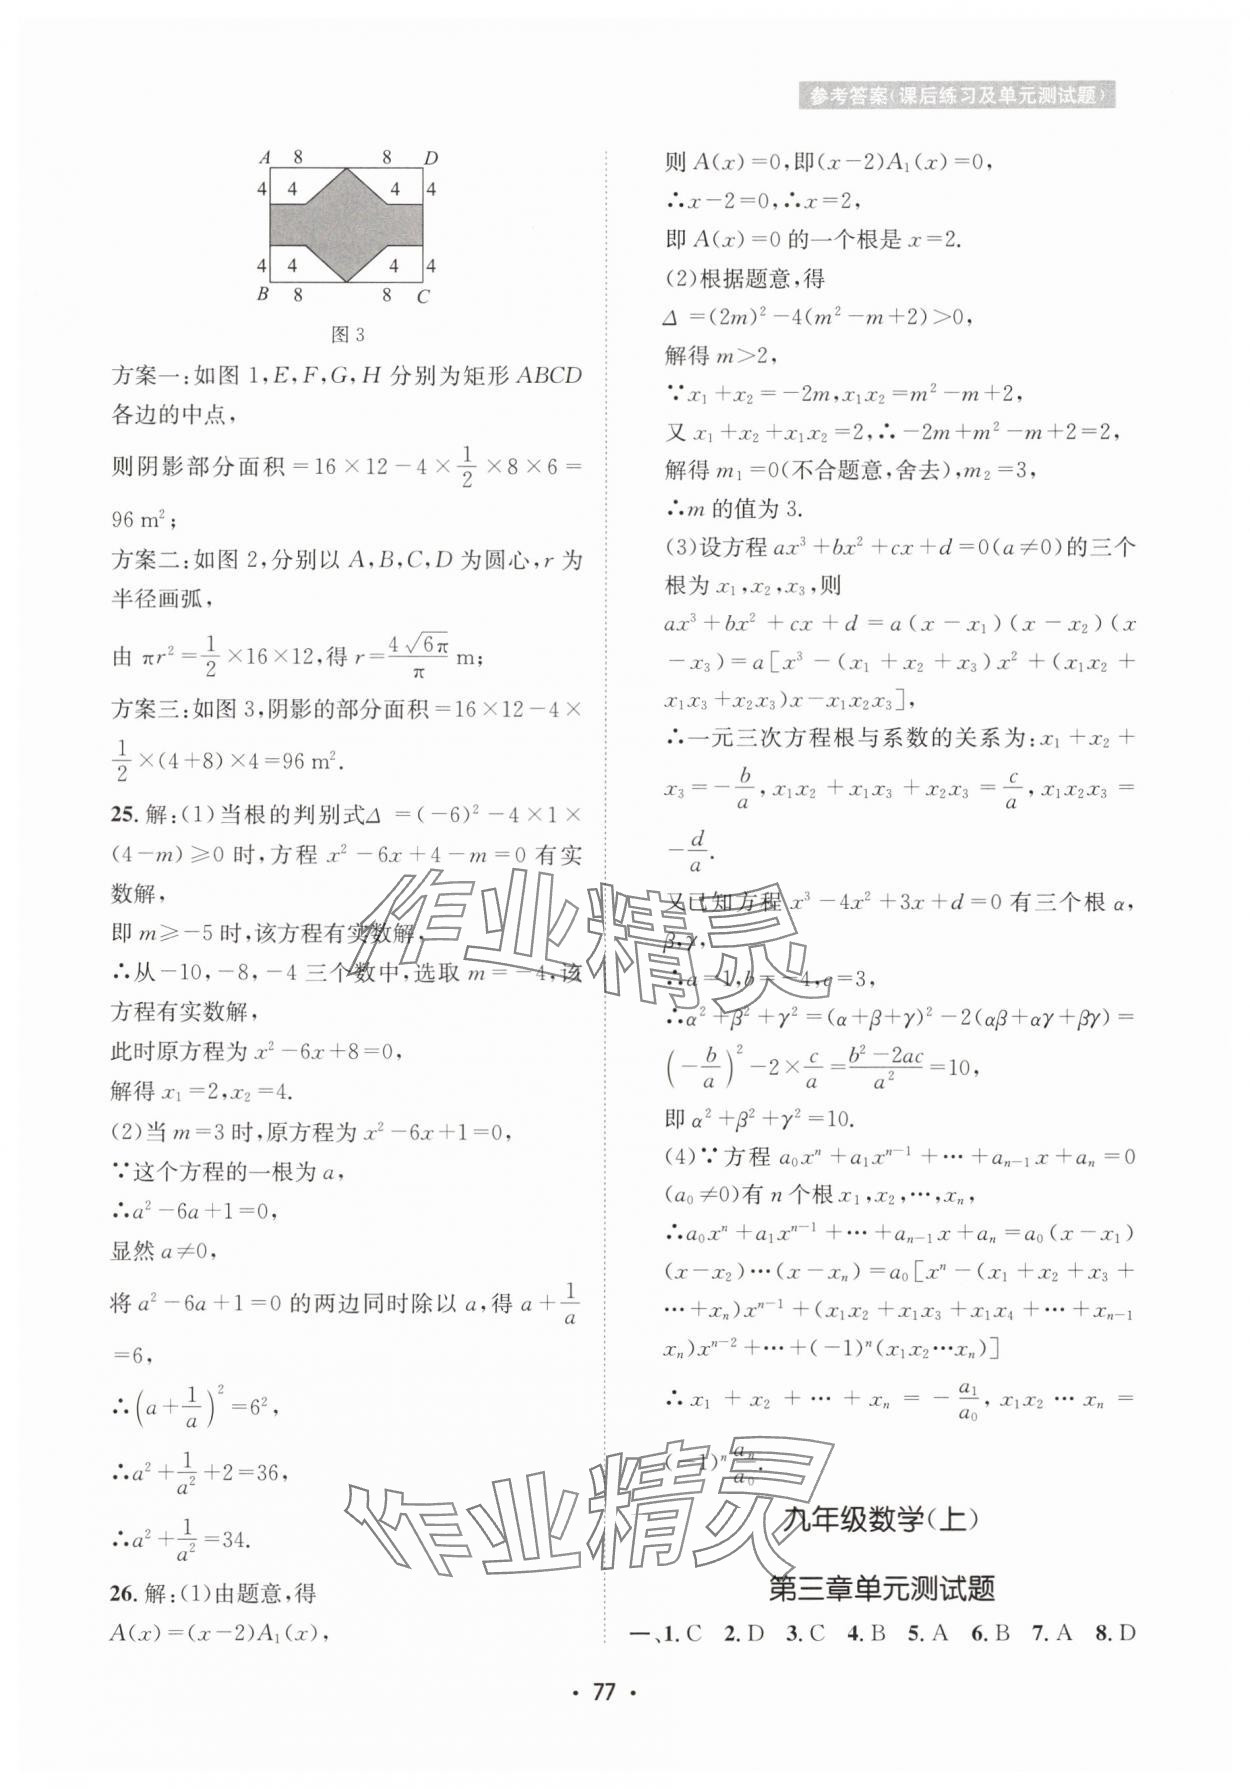 参考答案(课后练习及单元测试题)
A 8 8 D
4 4 4 4
4 4 4 4
B 8 8 C
图 3
方案一:如图 1,E,F,G,H 分别为矩形 ABCD
各边的中点,
则阴影部分面积=16×12-4×1/2×8×6=
96 m²;
方案二:如图 2,分别以 A,B,C,D 为圆心,r 为
半径画弧,
由 πr²=1/2×16×12,得 r=4√6π/π m;
方案三:如图 3,阴影的部分面积=16×12-4×
1/2×(4+8)×4=96 m².
25.解:(1)当根的判别式Δ=(-6)²-4×1×
(4-m)≥0 时,方程 x²-6x+4-m=0 有实
数解,
即 m≥-5 时,该方程有实数解,
∴从-10,-8,-4 三个数中,选取 m=-4,该
方程有实数解,
此时原方程为 x²-6x+8=0,
解得 x₁=2,x₂=4.
(2)当 m=3 时,原方程为 x²-6x+1=0,
∵这个方程的一根为 a,
∴a²-6a+1=0,
显然 a≠0,
将 a²-6a+1=0 的两边同时除以 a,得 a+1/a
=6,
∴(a+1/a)²=6²,
∴a²+1/a²+2=36,
∴a²+1/a²=34.
26.解:(1)由题意,得
A(x)=(x-2)A₁(x),
则 A(x)=0,即(x-2)A₁(x)=0,
∴x-2=0,∴x=2,
即 A(x)=0 的一个根是 x=2.
(2)根据题意,得
Δ=(2m)²-4(m²-m+2)>0,
解得 m>2,
∵x₁+x₂=-2m,x₁x₂=m²-m+2,
又 x₁+x₂+x₁x₂=2,∴-2m+m²-m+2=2,
解得 m₁=0(不合题意,舍去),m₂=3,
∴m 的值为 3.
(3)设方程 ax³+bx²+cx+d=0(a≠0)的三个
根为 x₁,x₂,x₃,则
ax³+bx²+cx+d=a(x-x₁)(x-x₂)(x
-x₃)=a[x³-(x₁+x₂+x₃)x²+(x₁x₂+
x₁x₃+x₂x₃)x-x₁x₂x₃],
∴一元三次方程根与系数的关系为:x₁+x₂+
x₃=-b/a,x₁x₂+x₁x₃+x₂x₃=c/a,x₁x₂x₃=
-d/a.
又已知方程 x³-4x²+3x+d=0 有三个根 α,
β,γ,
∴a=1,b=-4,c=3,
∴α²+β²+γ²=(α+β+γ)²-2(αβ+αγ+βγ)=
(-b/a)²-2×c/a=b²-2ac/a²=10,
即 α²+β²+γ²=10.
(4)∵方程 a₀xⁿ+a₁xⁿ⁻¹+⋯+aₙ₋₁x+aₙ=0
(a₀≠0)有 n 个根 x₁,x₂,⋯,xₙ,
∴a₀xⁿ+a₁xⁿ⁻¹+⋯+aₙ₋₁x+aₙ=a₀(x-x₁)
(x-x₂)⋯(x-xₙ)=a₀[xⁿ-(x₁+x₂+x₃+
⋯+xₙ)xⁿ⁻¹+(x₁x₂+x₁x₃+x₁x₄+⋯+xₙ₋₁
xₙ)xⁿ⁻²+⋯+(-1)ⁿ(x₁x₂⋯xₙ)]
∴x₁+x₂+⋯+xₙ=-a₁/a₀,x₁x₂⋯xₙ=
(-1)ⁿaₙ/a₀.
九年级数学(上)
第三章单元测试题
一、1.C 2.D 3.C 4.B 5.A 6.B 7.A 8.D
作业精灵
作业精灵
• 77 •